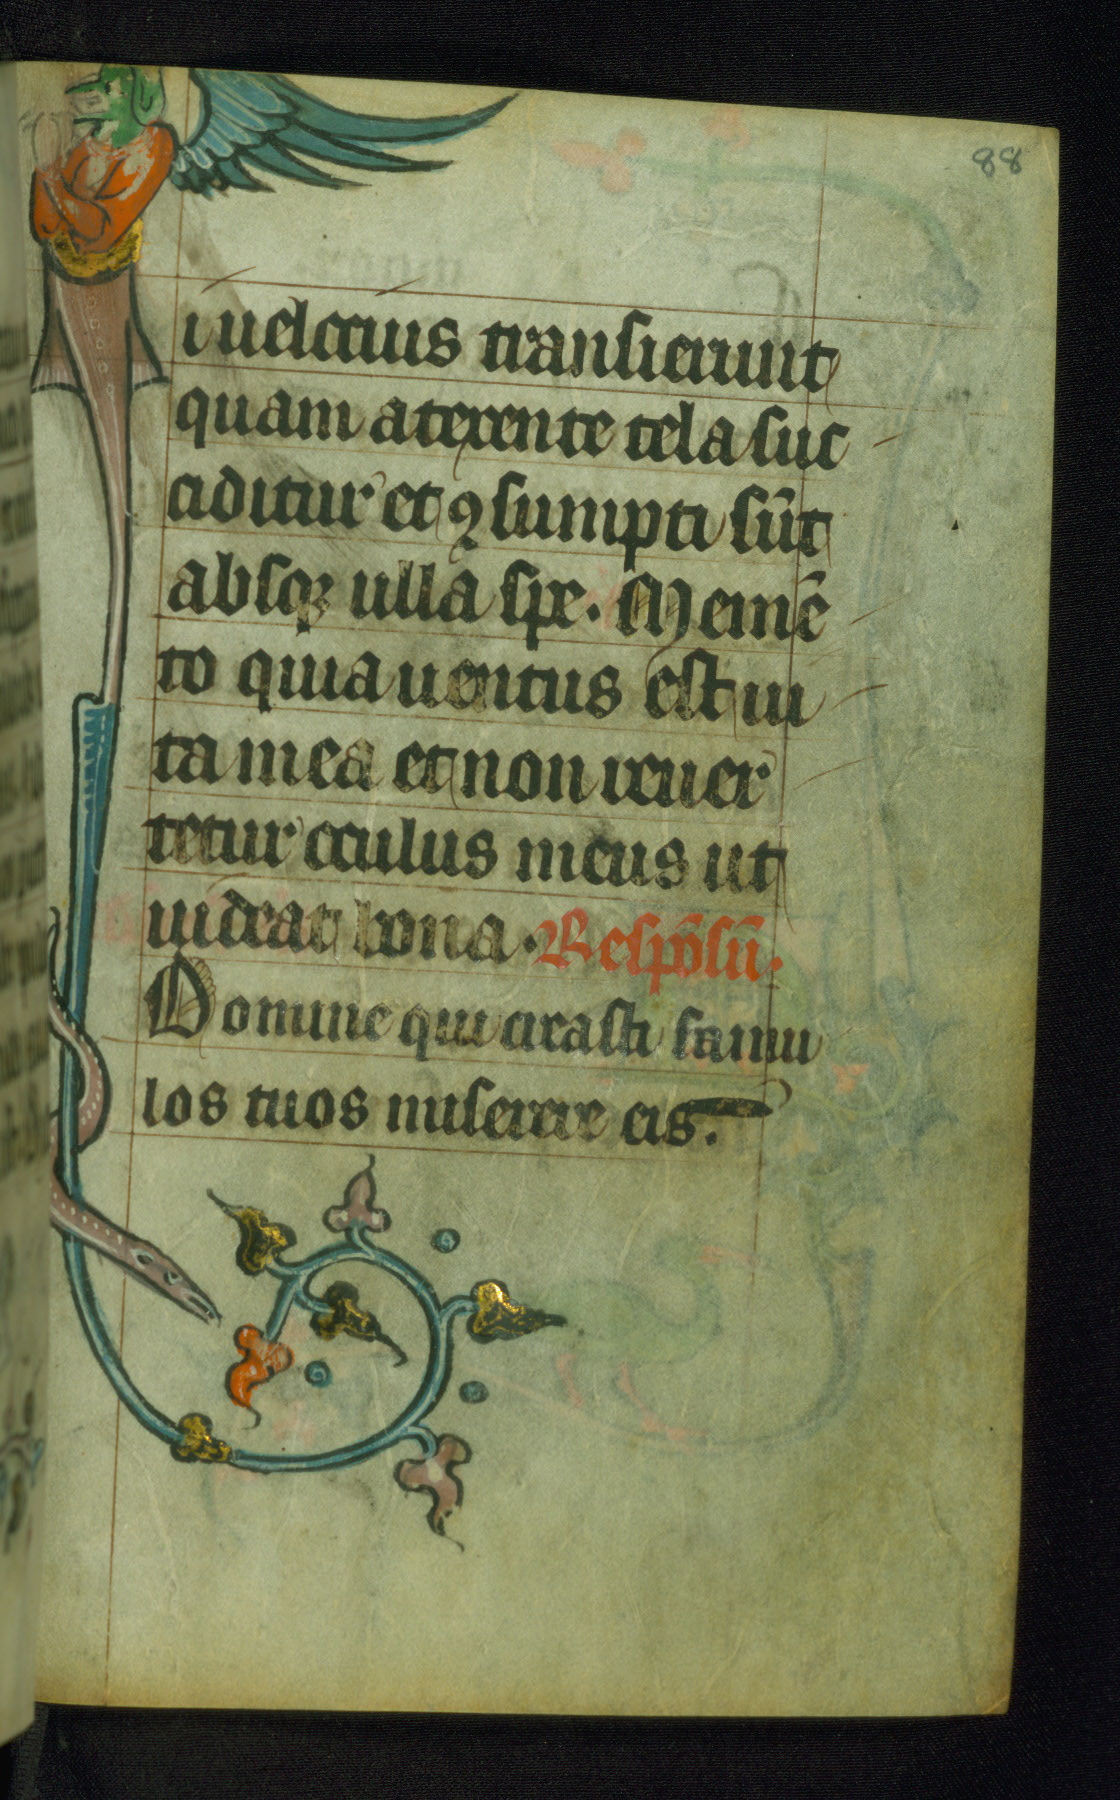 88
i uelocius transierunt
quam a texente tela suc
ciditur et ꝯsumpti sūt
absqꝫ ulla spe. Memē
to quia uentus est ui
ta mea et non reuer
tetur oculus meus ut
uideat bona. Respōsū.
Domine qui creasti famu
los tuos miserere eis.